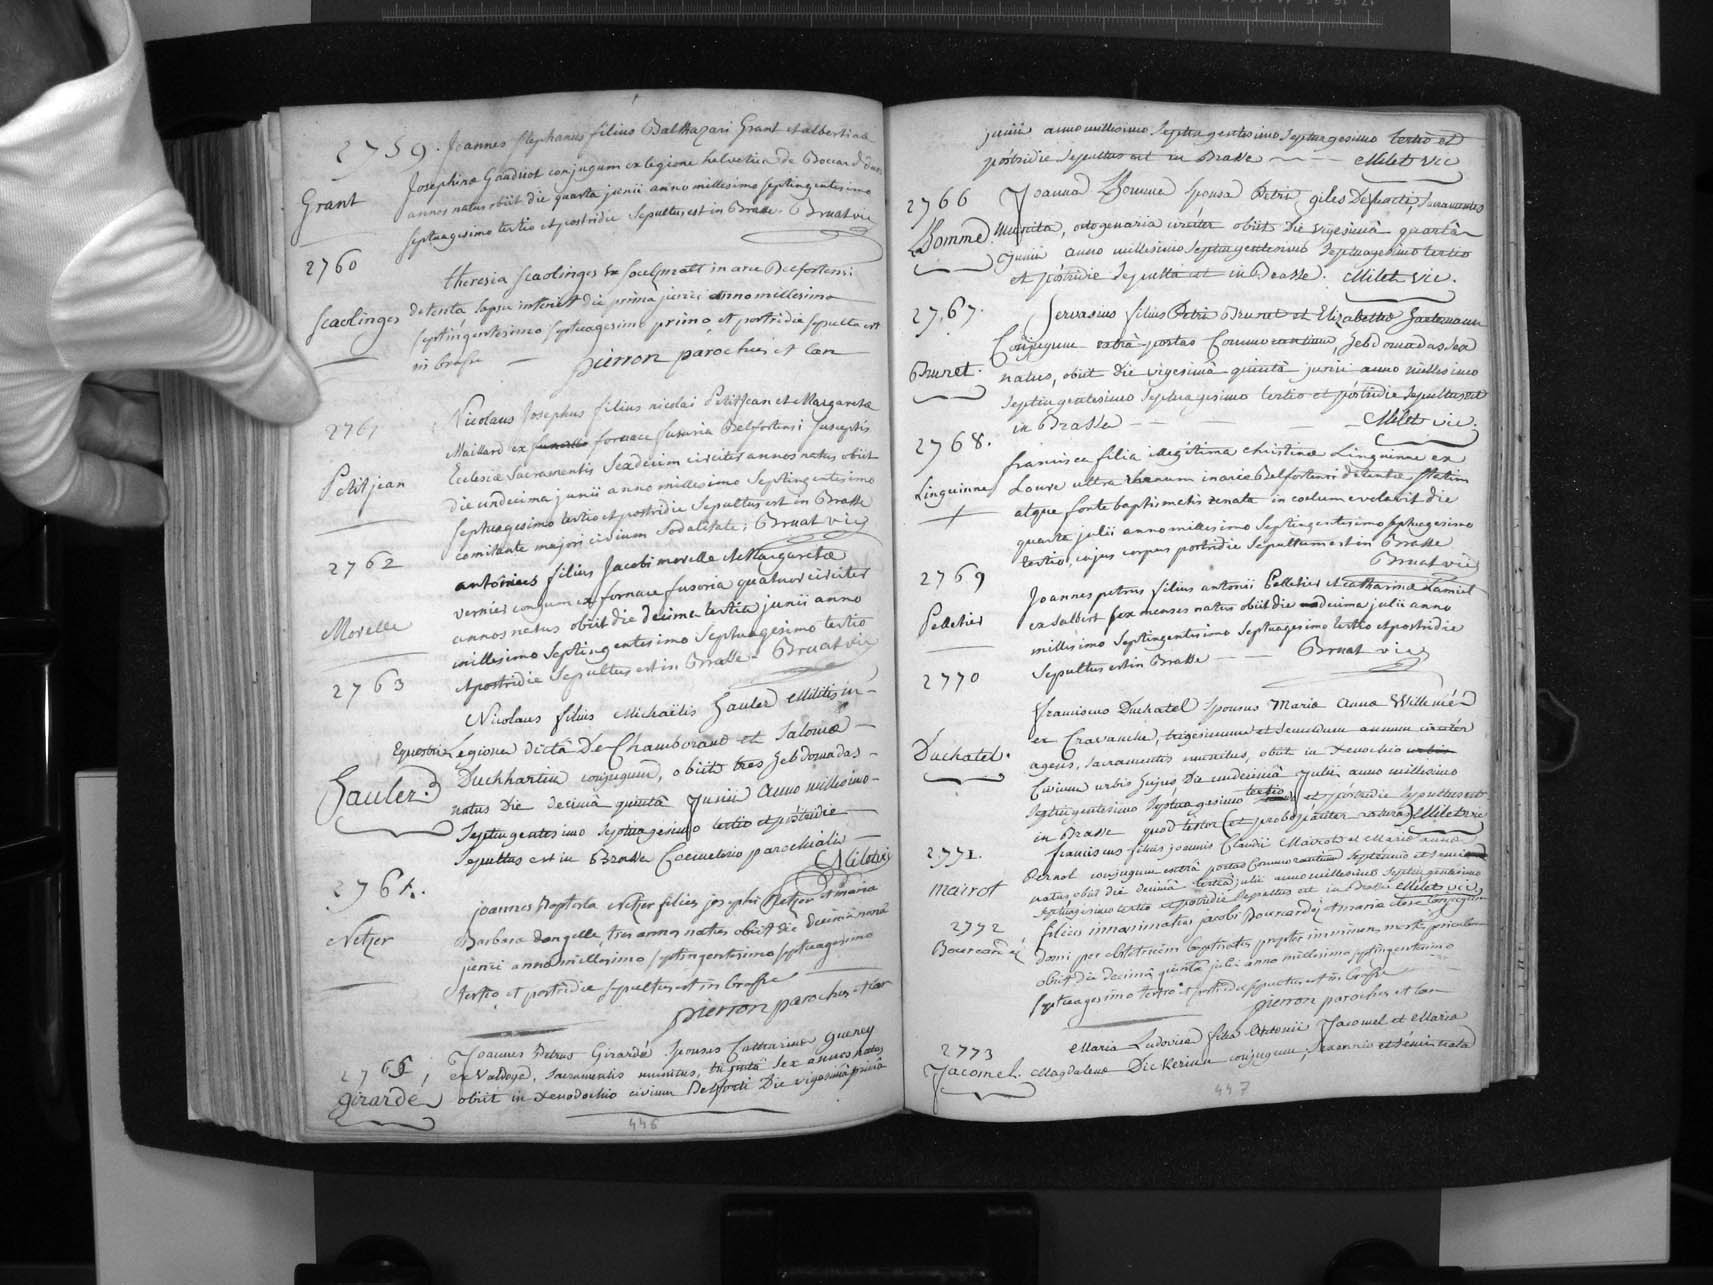 2759. Joannes Stephanus filius Balthazari Grant et albertinæ
Josephinæ Gauduot conjugum ex legione helvetica de Boccard duos
Grant
annos natus obiit die quarta junii anno millesimo septingentesimo
septuagesimo tertio et postridie sepultus est in Brasse. Bruat vic
2760
theresia scaolinges ex soulzmatt in arce Belfortensi
Scaolinges
detenta lapsu interiit die prima junii anno millesimo
septingentesimo septuagesimo primo, et postridie sepulta est
in brasse — pierron parochus et can
2761
Nicolaus Josephus filius nicolai Petitjean et Margareta
Maillard ex fornace fusoria Belfortensi susceptis
Petitjean
Ecclesiæ Sacramentis Sexdecim circiter annos natus obiit
die undecima junii anno millesimo Septingentesimo
septuagesimo tertio et postridie Sepultus est in Brasse
comitante majori civium Sodalitate; Bruat vic
2762
antonius filius Jacobi morelle et Margaretæ
vernier conjum ex fornace fusoria quatuor circiter
Morelle
annos natus obiit die decima tertia junii anno
millesimo Septingentesimo Septuagesimo tertio
et postridie Sepultus est in Brasse - Bruat vic
2763
Nicolaus filius Michaëlis Gauler Militis in
Equestri Legione dictâ De Chamborand et Salomeæ
Gauler.
Duckhartin conjugum, obiit tres hebdomadas
natus Die decimâ quintâ Junii Anno millesimo
Septingentesimo Septuagesimo tertio et postridie
Sepultus est in Brasse Coemeterio parochiali
Milet vic
2764.
joannes Baptista Netzer filius josephi Netzer et maria
Netzer
Barbara dongelle, tres annos natus obiit die decimâ nonâ
junii anno millesimo septingentesimo septuagesimo
tertio et postridie sepultus est in brasse
pierron parochus et can
2765,
Joannes Petrus Girardé Sponsus Catharinæ queney
ex Valdoye, Sacramentis munitus, triginta Sex annos natus
girardé
obiit in Xenodochio civium Belforti Die vigesimâ primâ
446
junii anno millesimo Septingentesimo Septuagesimo tertio et
postridie Sepultus est in Brasse — Milet vic
2766
Joanna Lhomme sponsa Petri giles Defuncti, Sacramentis
Lhomme
Munita, octogenaria circiter obiit Die vigesimâ quartâ
Junii anno millesimo Septingentesimo Septuagesimo tertio
et postridie Sepulta est in Brasse. Milet vic.
2767.
Servasius filius Petri Brunet et Elizabethæ Hartemann
Conjugum extrà portas Commorantium, hebdomadas Sex
Brunet.
natus, obiit Die vigesimâ quintâ junii anno millesimo
Septingentesimo Septuagesimo tertio et postridie Sepultus est
in Brasse — Milet vic.
2768.
francisca filia illegitima christinæ Linguinne ex
Linguinne
Loure ultra rhenum in arce Belfortensi detentæ statim
atque fonte baptismatis renata in coelum evolavit die
quarta julii anno millesimo Septingentesimo septuagesimo
tertio, cujus corpus postridie Sepultum est in Brasse
Bruat vic
2769
Joannes petrus filius antonii Pelletier et catharinæ Lamiel
Pelletier
ex salbert sex menses natus obiit die undecima julii anno
millesimo Septingentesimo Septuagesimo tertio et postridie
Sepultus est in Brasse — Bruat vic
2770
franciscus Duchatel Sponsus Mariæ Annæ Willemén
ex Cravanche, trigesimum et Secundum annum circiter
Duchatel.
agens, Sacramentis munitus, obiit in Xenochio
Civium urbis hujus Die undecimâ Julii anno millesimo
Septingentesimo Septuagesimo tertio et postridie Sepultus est
in Brasse quod testor Milet vic
2771.
franciscus filius joannis Claudii Mairot et Mariæ annæ
Pernot conjugum extrà portas Commorantium Septennis et
mairot
natus, obiit die decimâ tertiâ julii anno millesimo Septingentesimo
septuagesimo tertio et postridie Sepultus est in Brasse Milet vic
2772
filius innominatus jacobi Bourcardé et mariæ conjugum
Bourcardé
domi per obstetricem baptizatus propter imminens mortis periculum
obiit die decimâ quintâ julii anno millesimo septingentesimo
septuagesimo tertio et postridie sepultus est in brasse
pierron parochus et can
2773
Maria Ludovica filia Antonii Jacomel et Maria
Jacomel.
Magdalena Dickerinn conjugum, Sexennis et Semi nata
447